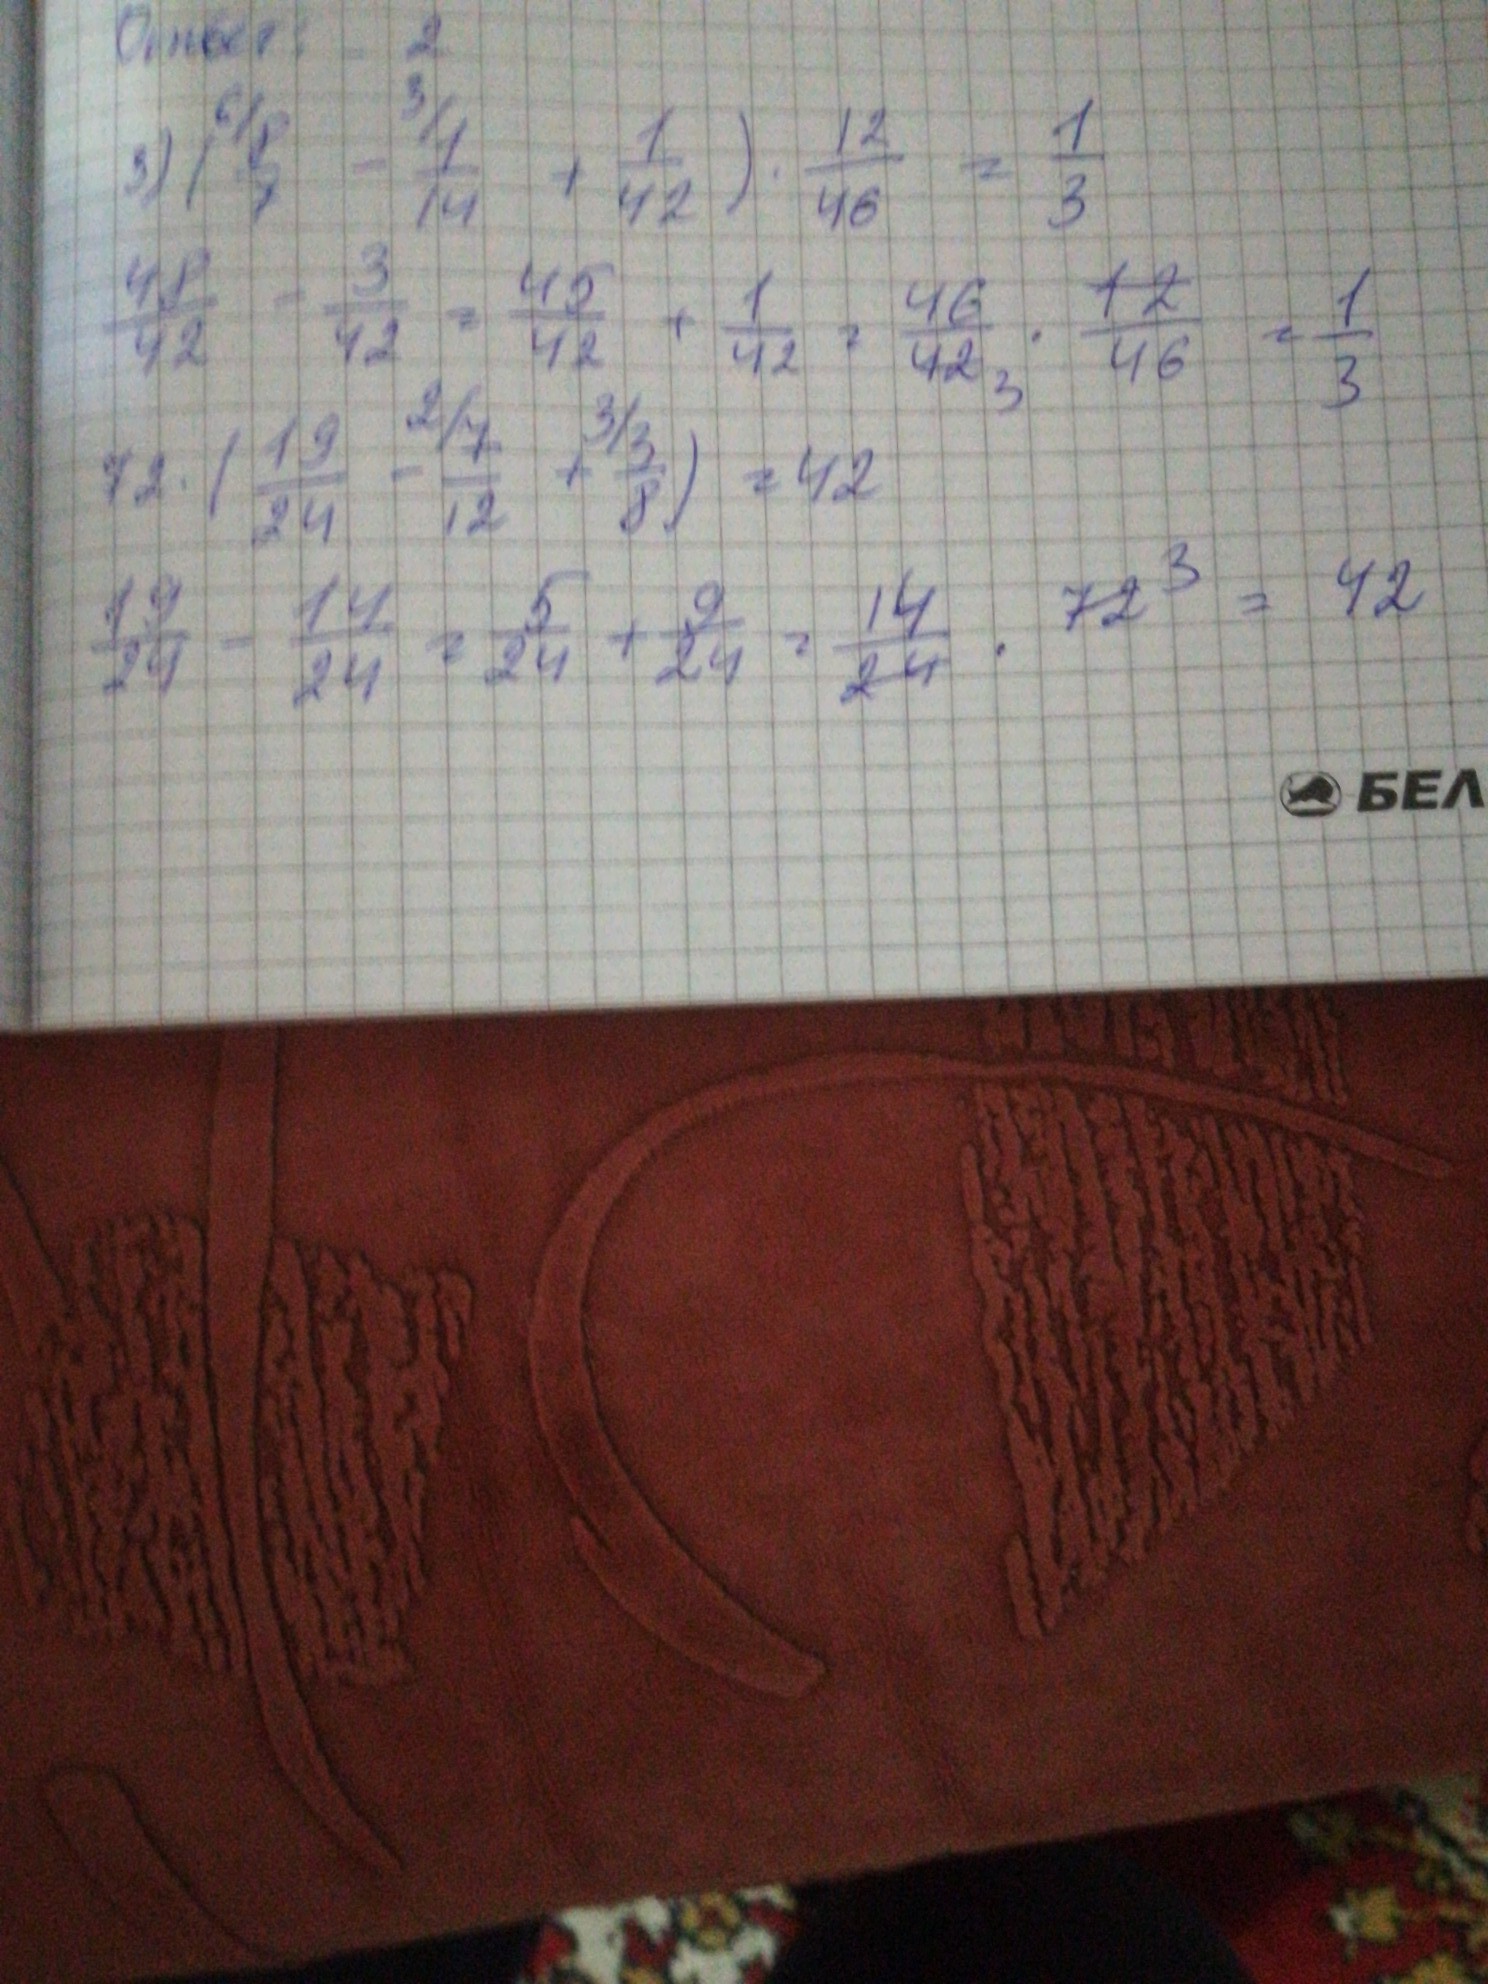 Ответ: 2
3) (⁶⁄8/7 - ³⁄1/14 + 1/42) · 12/46 = 1/3
48/42 - 3/42 = 45/42 + 1/42 = 46/42 3 · 12/46 = 1/3
72 · (19/24 - ²⁄7/12 + ³⁄3/8) = 42
19/24 - 14/24 = 5/24 + 9/24 = 14/24 · 72³ = 42
БЕЛ